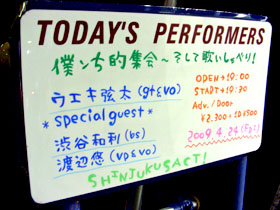 TODAY'S PERFORMERS
僕ンち的集会～そして歌いしゃべり!
ウエキ弦太(gt&vo)
*special guest*
渋谷和利(bs)
渡辺悠(vp&vo)
OPEN→10:00
START→10:30
Adv./Door
¥2.300/¥2500
2009.4.24(Fri)
SHINJUKUSACT!